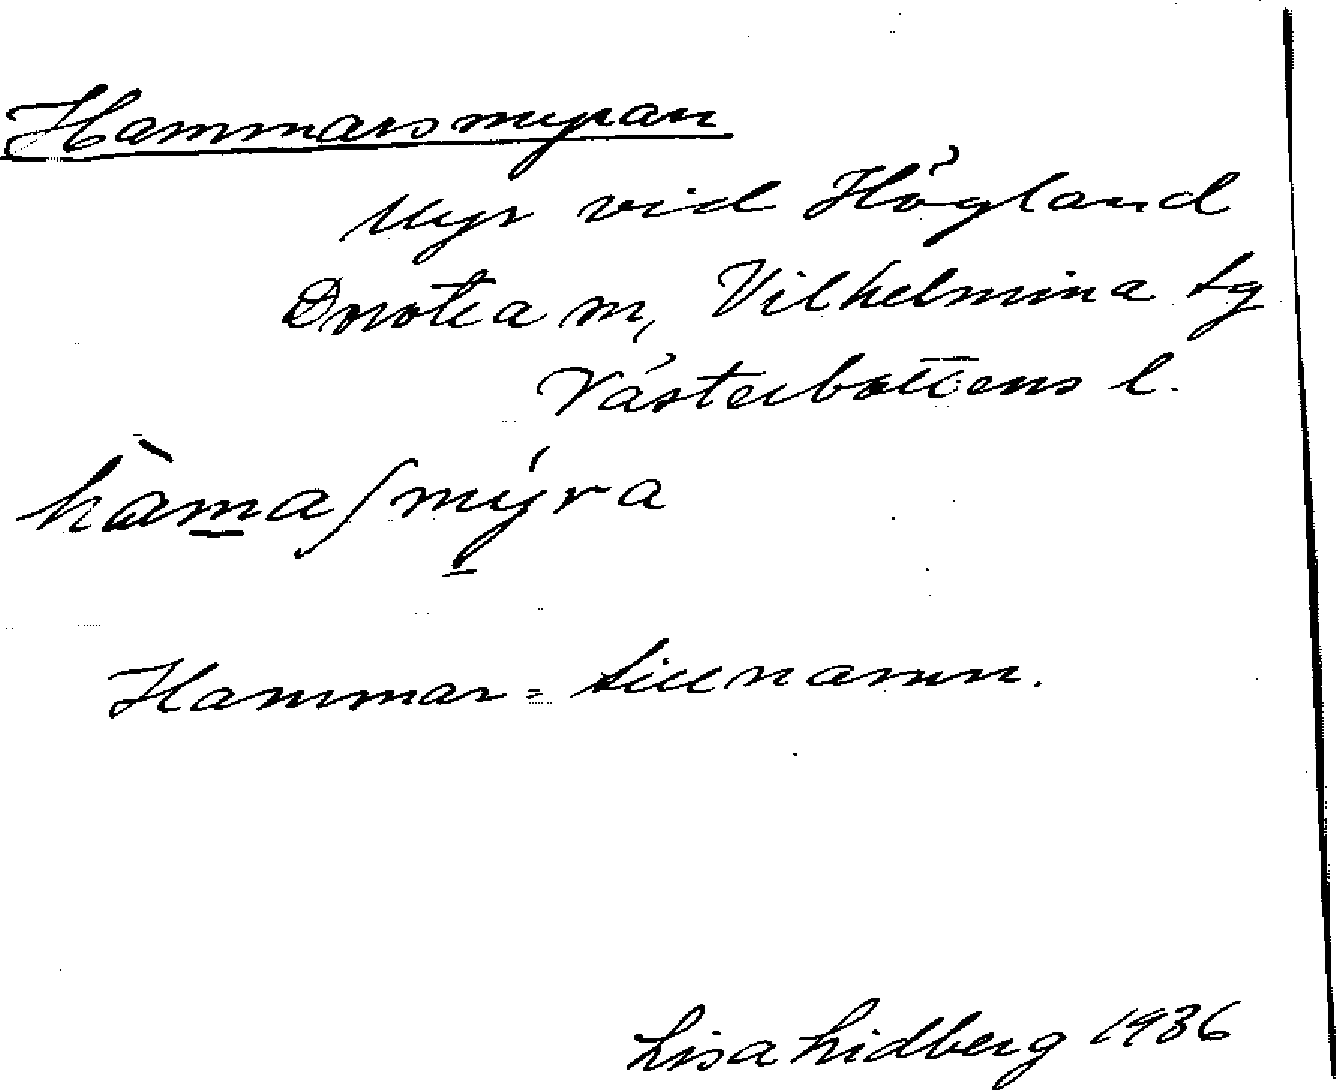 Hammarsmyran
Myr vid Högland
Dorotea sn, Vilhelmina tg
Västerbottens l.
hàm̲aʃmý̲ra
Hammar = tillnamn.
Lisa Lidberg 1936